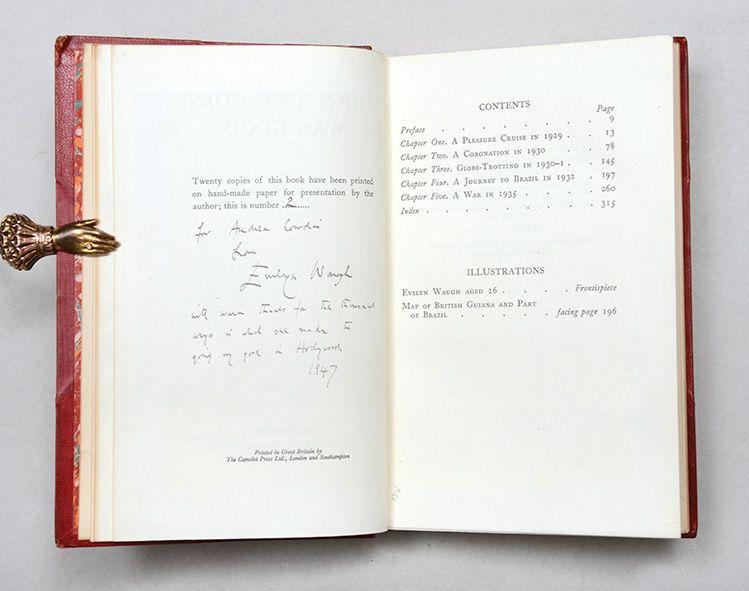 Twenty copies of this book have been printed
on hand-made paper for presentation by the
author; this is number 2
for Andrea Cowdin
from
Evelyn Waugh
with warm thanks for the thousand
ways in which she made the
going very good in Hollywood
1947
Printed in Great Britain by
The Camelot Press Ltd., London and Southampton
CONTENTS
Page
Preface . . . . . . . 9
Chapter One. A Pleasure Cruise in 1929 . . 13
Chapter Two. A Coronation in 1930 . . 78
Chapter Three. Globe-Trotting in 1930-1 . . 145
Chapter Four. A Journey to Brazil in 1932 . 197
Chapter Five. A War in 1935 . . . . 260
Index . . . . . . . 315
ILLUSTRATIONS
Evelyn Waugh aged 26 . . . . Frontispiece
Map of British Guiana and Part
of Brazil . . . . . facing page 196